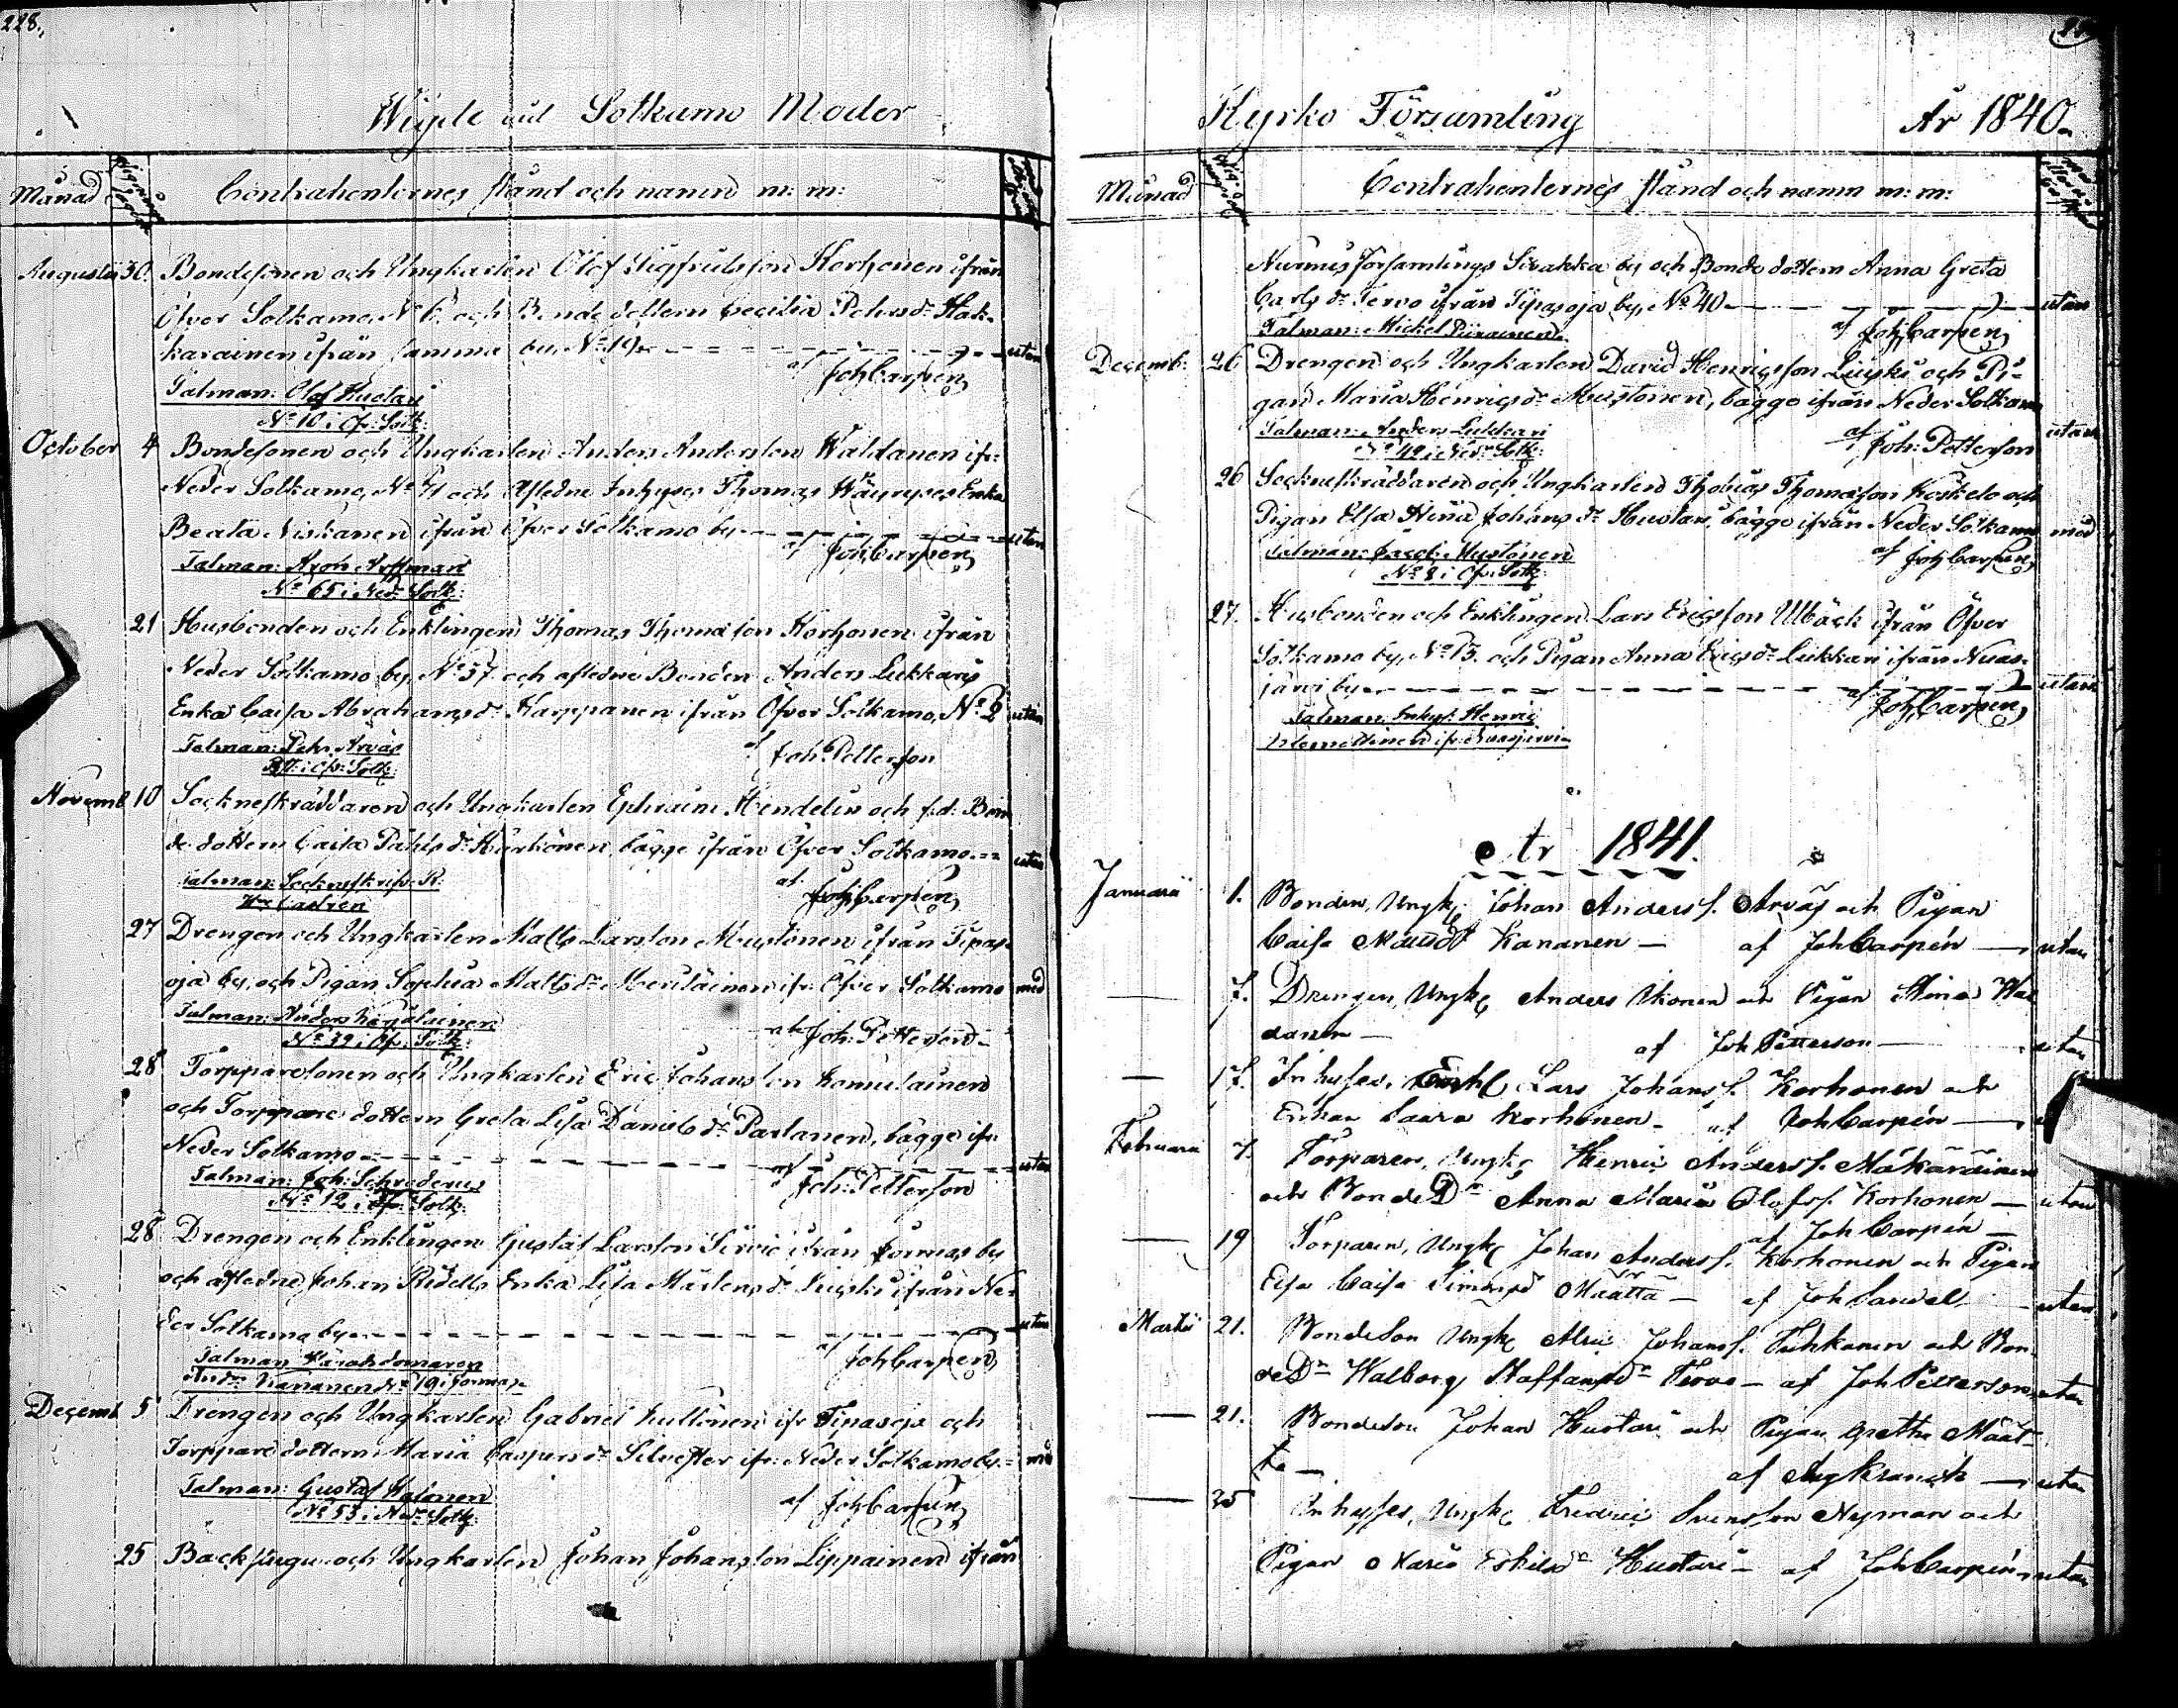 228.
Wigde uti Sotkamo Moder
Månad
Contrahenternes stånd och namn m: m:
Augusti 30. Bondesonen och Ungkarlen Olof Sigfridsson Korhonen ifrån
Öfver Sotkamo, No 6. och Bonde dottern Cecilia Pehrsdr Hak-
karainen ifrån samma by, No 19. utan
af Joh Carpen
Talman: Olof Huotari
No 10 i Öf: Sotk:
October 4 Bondesonen och Ungkarlen Anders Andersson Waldanen ifr:
Neder Sotkamo, No och Afledne Inhyses Thomas Wäyryses Enka
Beata Niskanen ifrån Öfver Sotkamo by utan
af Joh Carpen
Talman: Aron Arffman
No 65 i Nedr Sotk:
21 Husbonden och Enklingen Thomas Thomasson Korhonen ifrån
Neder Sotkamo by, No 57 och afledne Bonden Anders Lukkaris
Enka Caisa Abrahamsdr Karppanen ifrån Öfver Sotkamo, No 2 utan
Talman: Pehr Arväs
i Öfr: Sotk:
af Joh: Petterson
Novemb 10 Socknefkräddaren och Ungkarlen Ephraim Hendelin och f.d. Bon
de dottern Caisa Påhlsdr Kärkönen, bägge ifrån Öfver Sotkamo. utan
Talman: Socknefkrif: R.
Castren
af Joh Carpen
27 Drengen och Ungkarlen Matts Larsson Mustonen ifrån Tipas-
oja by, och Pigan Sophia Mattsdr Meriläinen ifr: Öfver Sotkamo med
Talman: Anders Karjalainen
No 39 i Öf: Sotk:
af Joh: Petterson
28 Torpparesonen och Ungkarlen Eric Johansson Komulainen
och Torppare dottern Greta Lisa Danielsdr Partanen, bägge ifr:
Neder Sotkamo utan
Talman: Joh: Schroderus
No 12 i Öf: Sotk:
af Joh: Petterson
28 Drengen och Enklingen Gustaf Larsson Servio ifrån Jormas by
och afledne Johan Ridells Enka Lisa Mårtensdr Leiski ifrån Ne-
der Sotkamo by utan
Talman Häradsdomaren
Andrs Kananen No 19 i Jormas
af Joh Carpen
Decemb 5 Drengen och Ungkarlen Gabriel Kultonen ifr Tipasoja och
Torppare dottern Maria Caspersdr Silvester ifr: Neder Sotkamo by med
Talman: Gustaf Halonen
No 53 i Nedr Sotk:
af Joh Carpen
25 Backstugu och Ungkarlen Johan Johansson Lippainen ifrån
Kyrko Församling År 1840.
Månad
Contrahenternes stånd och namn m: m:
Nurmis församlings Sivakka by och Bonde dottern Anna Greta
Carlsdr Tervo ifrån Tipasoja by, No 40 utan
Talman: Mickel Piirainen
af Joh Carpen
Decemb: 26 Drengen och Ungkarlen David Henricsson Leiski och Pi-
gan Maria Henricsdr Mustonen, bägge ifrån Neder Sotkamo
utan
Talman: Anders Lukkari
No 42 i Nedr Sotk:
af Joh: Petterson
26 Socknefkräddaren och Ungkarlen Thobias Thomasson Koskelo och
Pigan Elsa Stina Johansdr Huotari, bägge ifrån Neder Sotkamo med
Talman: Jacob Mustonen
No 8 i Öfr: Sotk:
af Joh Carpen
27. Husbonden och Enklingen Lars Ericsson Ulbäck ifrån Öfver
Sotkamo by, No 13. och Pigan Anna Ericsdr Lukkari ifrån Nuas-
järvi by utan
af Joh Carpen
Talman: Inhys: Henric
ifr: Nuasjärvi
År 1841.
Januarii 1. Bonden, Ungk: Johan Anderss. Arväs och Pigan
Caisa Kananen — af Joh Carpén — utan
— 7. Drengen, Ungk: Anders Ukonen och Pigan Stina Wal
danen — af Joh Petterson — utan
— 17. Inhyses, Enkl Lars Johanss. Korhonen och
Enkan Saara Korhonen — af Joh Carpén —
Februarii 7. Torparen, Ungk: Henric Anderss. Mäkäräinen
och Bonde Dr Anna Maria Olofss. Korhonen — utan
af Joh Carpén —
— 19 Torparen, Ungk: Johan Anderss. Korhonen och Pigan
Elsa Caisa Simonsd Määttä — af Joh Sandell utan
Martii 21. Bondeson Ungk: Johanss. Tuhkanen och Bon-
de Dr Walborg Staffansdr Tervo — af Joh Petterson utan
— 21. Bondeson Johan Huotari och Pigan Gretha Määt-
tä — af Aug Kranck — utan
— 25 Inhyses, Ungk: Fredric Svensson Nyman och
Pigan Maria Eskilsdr Huotari — af Joh Carpén — utan